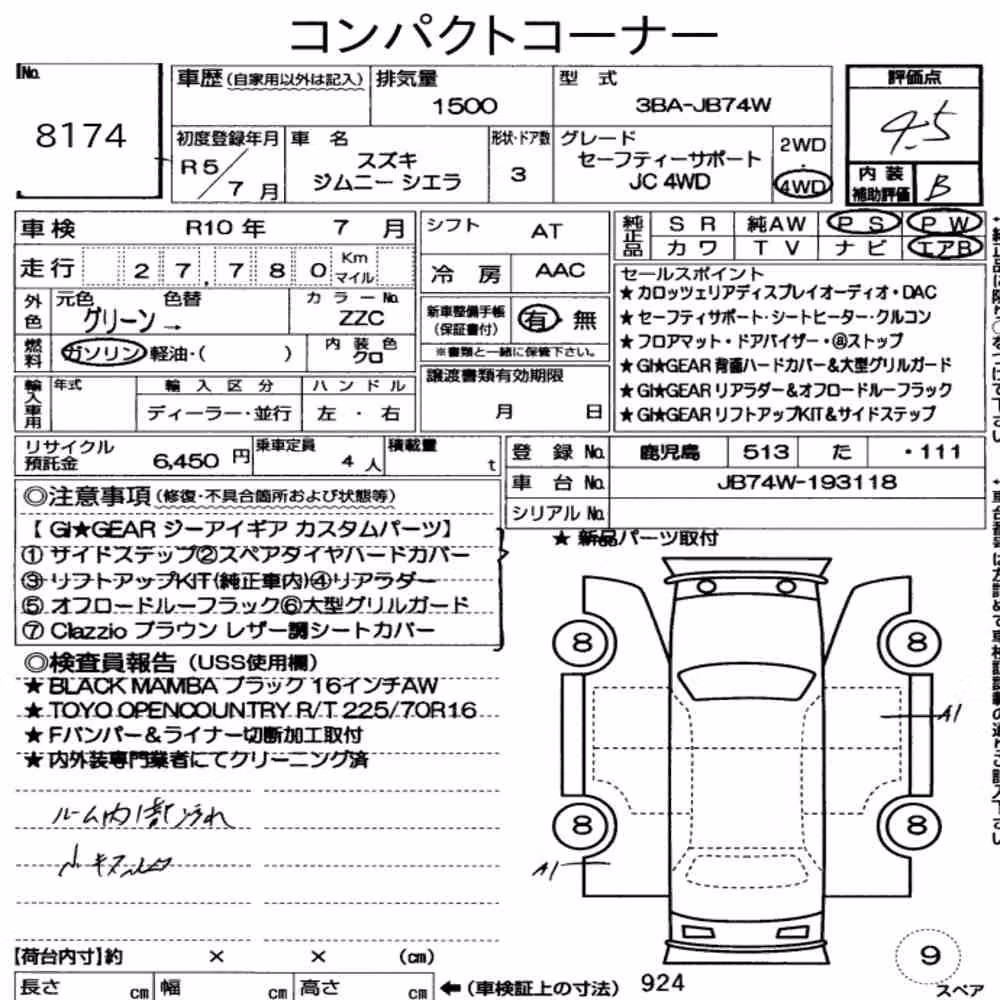 コンパクトコーナー
No. 8174
車歴 (自家用以外は記入)
排気量 1500
型式 3BA-JB74W
評価点 4.5
初度登録年月 R5/7月
車名 スズキ ジムニー シエラ
形状・ドア数 3
グレード セーフティーサポート JC 4WD
2WD・4WD
内装補助評価 B
車検 R10年 7月
シフト AT
純正品 SR 純AW PS PW
カワ TV ナビ エアB
走行 27,780 Km マイル
冷房 AAC
セールスポイント
★カロッツェリアディスプレイオーディオ・DAC
★セーフティサポート・シートヒーター・クルコン
★フロアマット・ドアバイザー・⑧ストップ
★GI★GEAR 背面ハードカバー&大型グリルガード
★GI★GEAR リアラダー&オフロードルーフラック
★GI★GEAR リフトアップKIT&サイドステップ
外色 元色 グリーン→ 色替
カラーNo. ZZC
新車整備手帳(保証書付) 有・無
※書類と一緒に保管下さい。
燃料 ガソリン 軽油・( )
内装色 クロ
譲渡書類有効期限
月 日
輸入車用 年式 輸入区分 ハンドル
ディーラー・並行 左・右
リサイクル預託金 6,450円
乗車定員 4人
積載量 t
登録No. 鹿児島 513 た ・111
車台No. JB74W-193118
シリアルNo.
◎注意事項 (修復・不具合箇所および状態等)
【 GI★GEAR ジーアイギア カスタムパーツ】
① サイドステップ②スペアタイヤハードカバー
③ リフトアップKIT(純正車内)④リアラダー
⑤ オフロードルーフラック⑥大型グリルガード
⑦ Clazzio ブラウン レザー調シートカバー
★ 新品パーツ取付
◎検査員報告 (USS使用欄)
★ BLACK MAMBA ブラック 16インチAW
★ TOYO OPENCOUNTRY R/T 225/70R16
★ Fバンパー&ライナー切断加工取付
★ 内外装専門業者にてクリーニング済
ルーム内
小キズ
8 8
A1
8 8
A1
9
スペア
【荷台内寸】約 × × (cm)
長さ cm 幅 cm 高さ cm ←(車検証上の寸法) 924